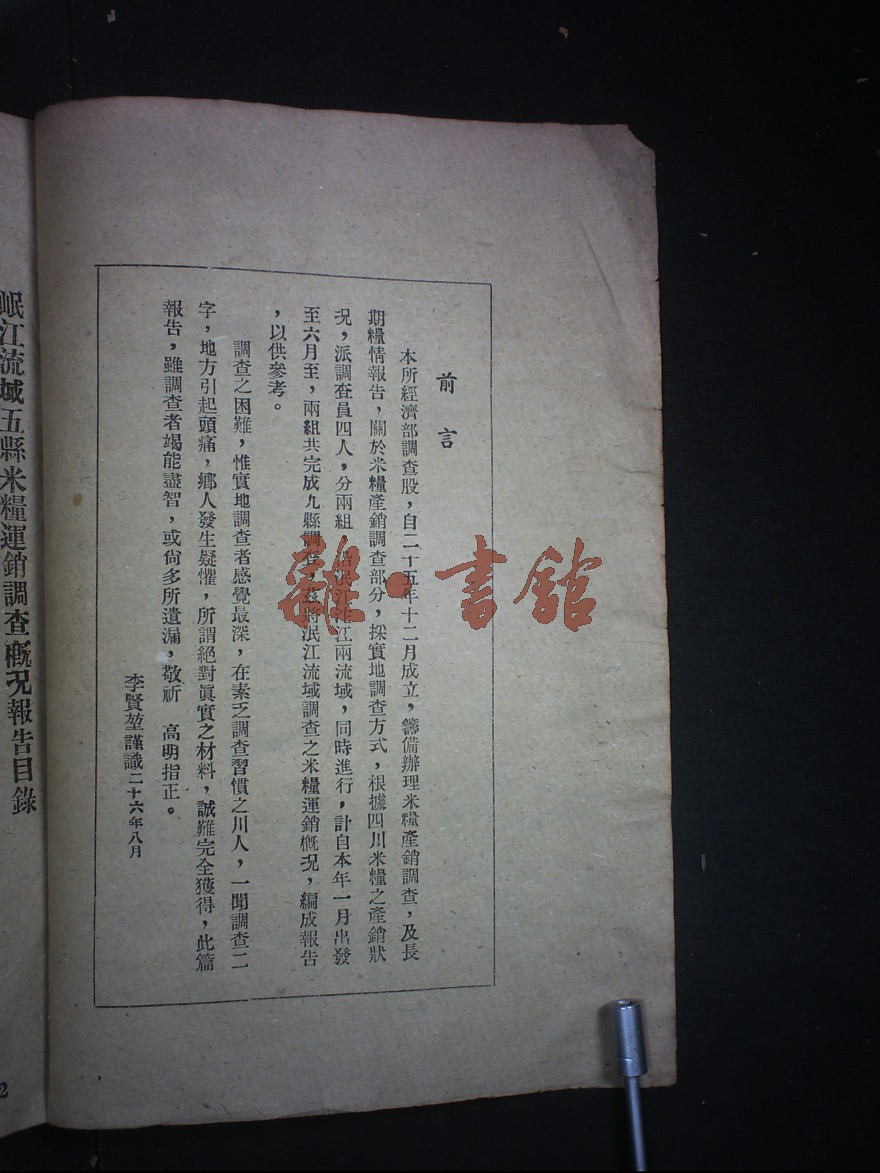 前言
本所經濟部調查股，自二十五年十二月成立，籌備辦理米糧產銷調查，及長
期糧情報告，關於米糧產銷調查部分，採實地調查方式，根據四川米糧之產銷狀
況，派調查員四人，分兩組 沿泯江沱江兩流域，同時進行，計自本年一月出發
至六月至，兩組共完成九縣調查，茲將泯江流域調查之米糧運銷概况，編成報告
，以供參考。
調查之困難，惟實地調查者感覺最深，在素乏調查習慣之川人，一聞調查二
字，地方引起頭痛，鄉人發生疑懼，所謂絕對眞實之材料，誠難完全獲得，此篇
報告，雖調查者竭能盡智，或尙多所遺漏，敬祈 高明指正。
李賢堃謹識二十六年八月
岷江流域五縣米糧運銷調查概况報告目錄
2
雜·書館